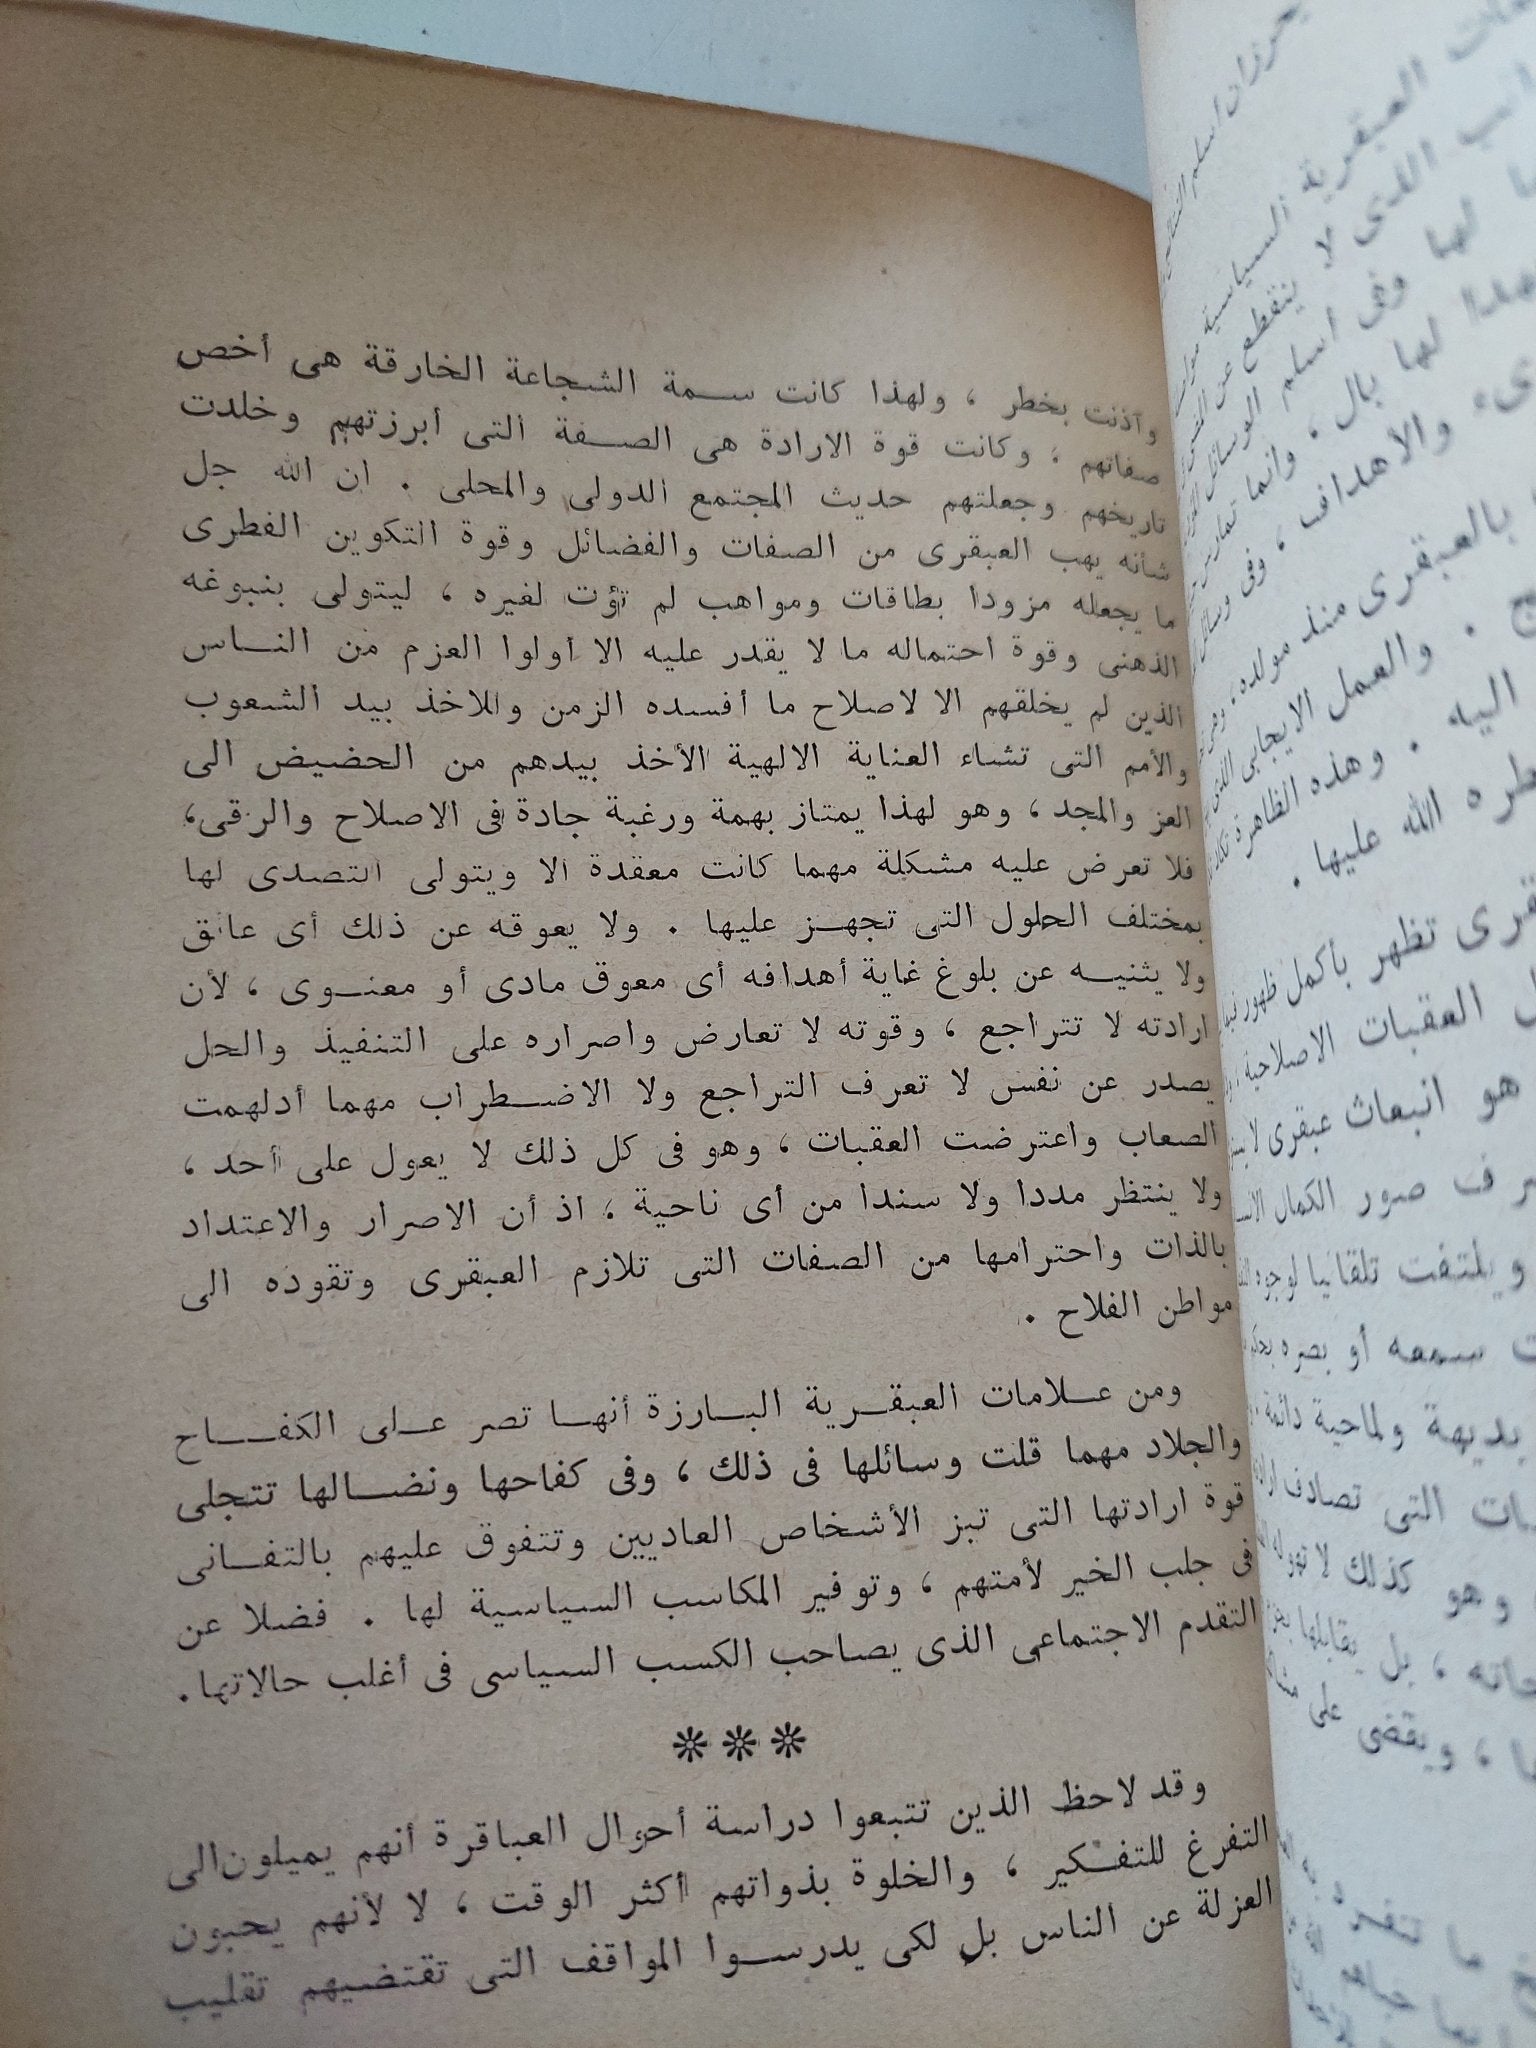 وآذنت بخطر ، ولهذا كانت سمة الشجاعة الخارقة هى أخص
صفاتهم ، وكانت قوة الارادة هى الصفة التى أبرزتهم وخلدت
تاريخهم وجعلتهم حديث المجتمع الدولى والمحلى . ان الله جل
شأنه يهب العبقرى من الصفات والفضائل وقوة التكوين الفطرى
ما يجعله مزودا بطاقات ومواهب لم تؤت لغيره ، ليتولى بنبوغه
الذهنى وقوة احتماله ما لا يقدر عليه الا أولوا العزم من الناس
الذين لم يخلقهم الا لاصلاح ما أفسده الزمن وللاخذ بيد الشعوب
والأمم التى تشاء العناية الالهية الأخذ بيدهم من الحضيض الى
العز والمجد ، وهو لهذا يمتاز بهمة ورغبة جادة فى الاصلاح والرقى،
فلا تعرض عليه مشكلة مهما كانت معقدة الا ويتولى التصدى لها
بمختلف الحلول التى تجهز عليها . ولا يعوقه عن ذلك أى عائق
ولا يثنيه عن بلوغ غاية أهدافه أى معوق مادى أو معنوى ، لأن
ارادته لا تتراجع ، وقوته لا تعارض واصراره على التنفيذ والحل
يصدر عن نفس لا تعرف التراجع ولا الاضطراب مهما أدلهمت
الصعاب واعترضت العقبات ، وهو فى كل ذلك لا يعول على أحد ،
ولا ينتظر مددا ولا سندا من أى ناحية ، اذ أن الاصرار والاعتداد
بالذات واحترامها من الصفات التى تلازم العبقرى وتقوده الى
مواطن الفلاح .
ومن علامات العبقرية البارزة أنها تصر على الكفاح
والجلاد مهما قلت وسائلها فى ذلك ، وفى كفاحها ونضالها تتجلى
قوة ارادتها التى تبز الأشخاص العاديين وتتفوق عليهم بالتفانى
فى جلب الخير لأمتهم ، وتوفير المكاسب السياسية لها . فضلا عن
التقدم الاجتماعى الذى يصاحب الكسب السياسى فى أغلب حالاتها.
***
وقد لاحظ الذين تتبعوا دراسة أحوال العباقرة أنهم يميلون الى
التفرغ للتفكير ، والخلوة بذواتهم أكثر الوقت ، لا لأنهم يحبون
العزلة عن الناس بل لكى يدرسوا المواقف التى تقتضيهم تقليب
العبقرية السياسية
الذى لا ينقطع عن
لها وفى اسلم الوسائل
لها بال . وانما تمارس
والأهداف ، وفى وسائل
بالعبقرى منذ مولده ، وهى
. والعمل الايجابى الذى
اليه . وهذه الظاهرة
الله عليها .
تظهر بأكمل ظهور
العقبات الاصلاحية
هو انبعاث عبقرى لا
صور الكمال
ويلتفت تلقائيا لوجوه
سمعه أو بصره
بديهة ولماحية دائمة
التى تصادف
وهو كذلك لا
، بل يقابلها
، ويقضى على